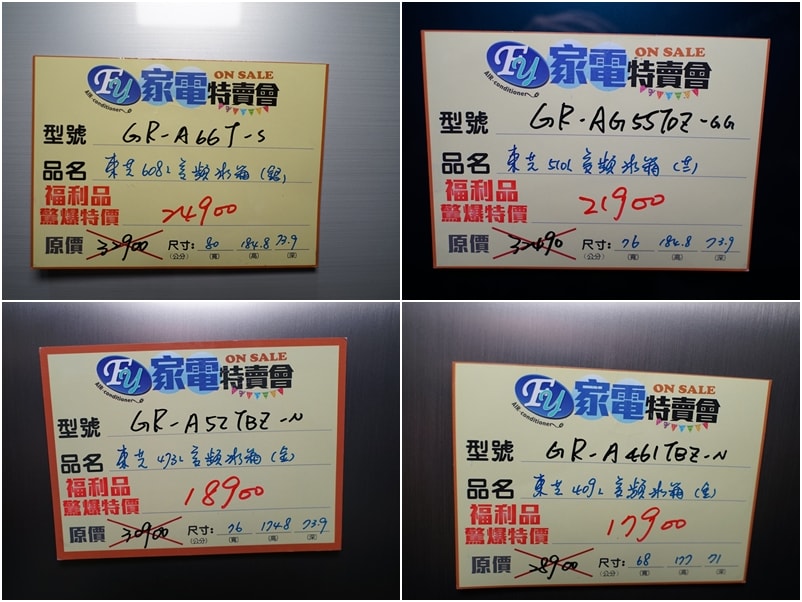 FY 家電特賣會 ON SALE
AIR-conditioner
型號 GR-A66T-S
品名 東芝608L變頻冰箱(銀)
福利品
驚爆特價 24900
原價 32900 尺寸: 80 184.8 73.9
(公分) (寬) (高) (深)
FY 家電特賣會 ON SALE
AIR-conditioner
型號 GR-AG55TDZ-GG
品名 東芝510L變頻冰箱
福利品
驚爆特價 21900
原價 32490 尺寸: 76 184.8 73.9
(公分) (寬) (高) (深)
FY 家電特賣會 ON SALE
AIR-conditioner
型號 GR-A52TBZ-N
品名 東芝473L變頻冰箱(金)
福利品
驚爆特價 18900
原價 30900 尺寸: 76 174.8 73.9
(公分) (寬) (高) (深)
FY 家電特賣會 ON SALE
AIR-conditioner
型號 GR-A461TBZ-N
品名 東芝409L變頻冰箱(金)
福利品
驚爆特價 17900
原價 28900 尺寸: 68 177 71
(公分) (寬) (高) (深)